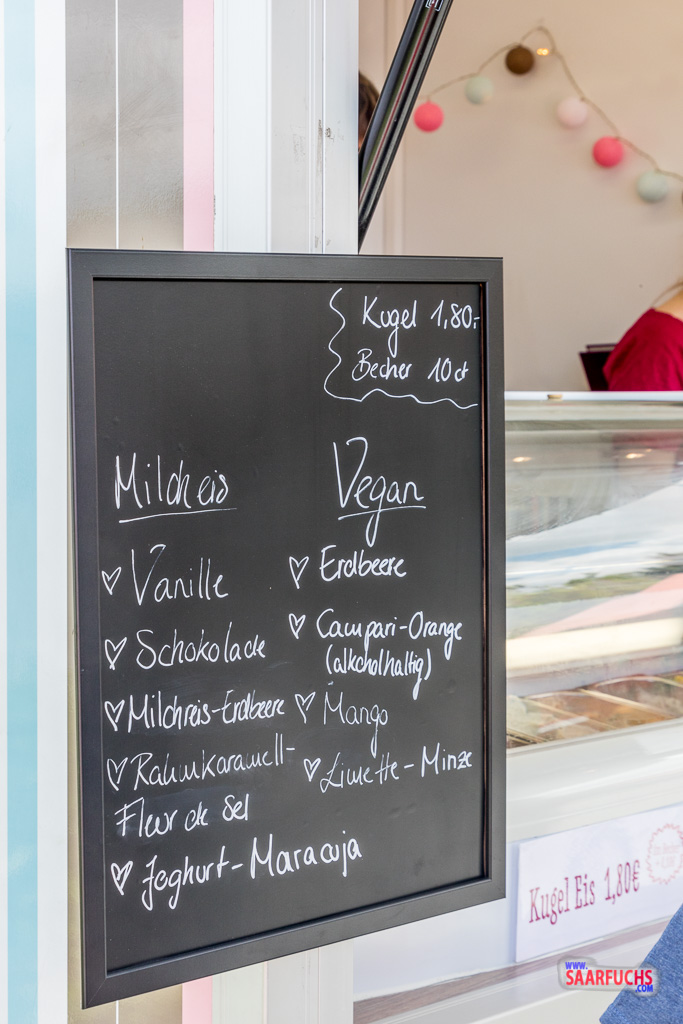 Kugel 1,80.-
Becher 10ct
Milcheis
Vanille
Schokolade
Milchreis-Erdbeere
Rahmkaramell-
Fleur de Sel
Joghurt-Maracuja
Vegan
Erdbeere
Campari-Orange
(alkoholhaltig)
Mango
Limette-Minze
Kugel Eis 1,80€
WWW.
SAARFUCHS
.COM